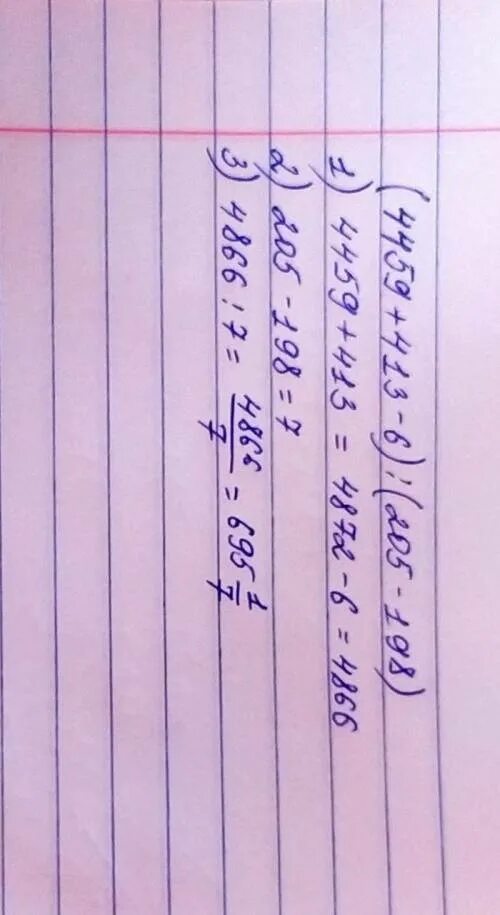 (4459+413-6):(205-198)
1) 4459+413 = 4872-6=4866
2) 205-198=7
3) 4866:7= 4866/7 = 695 1/7